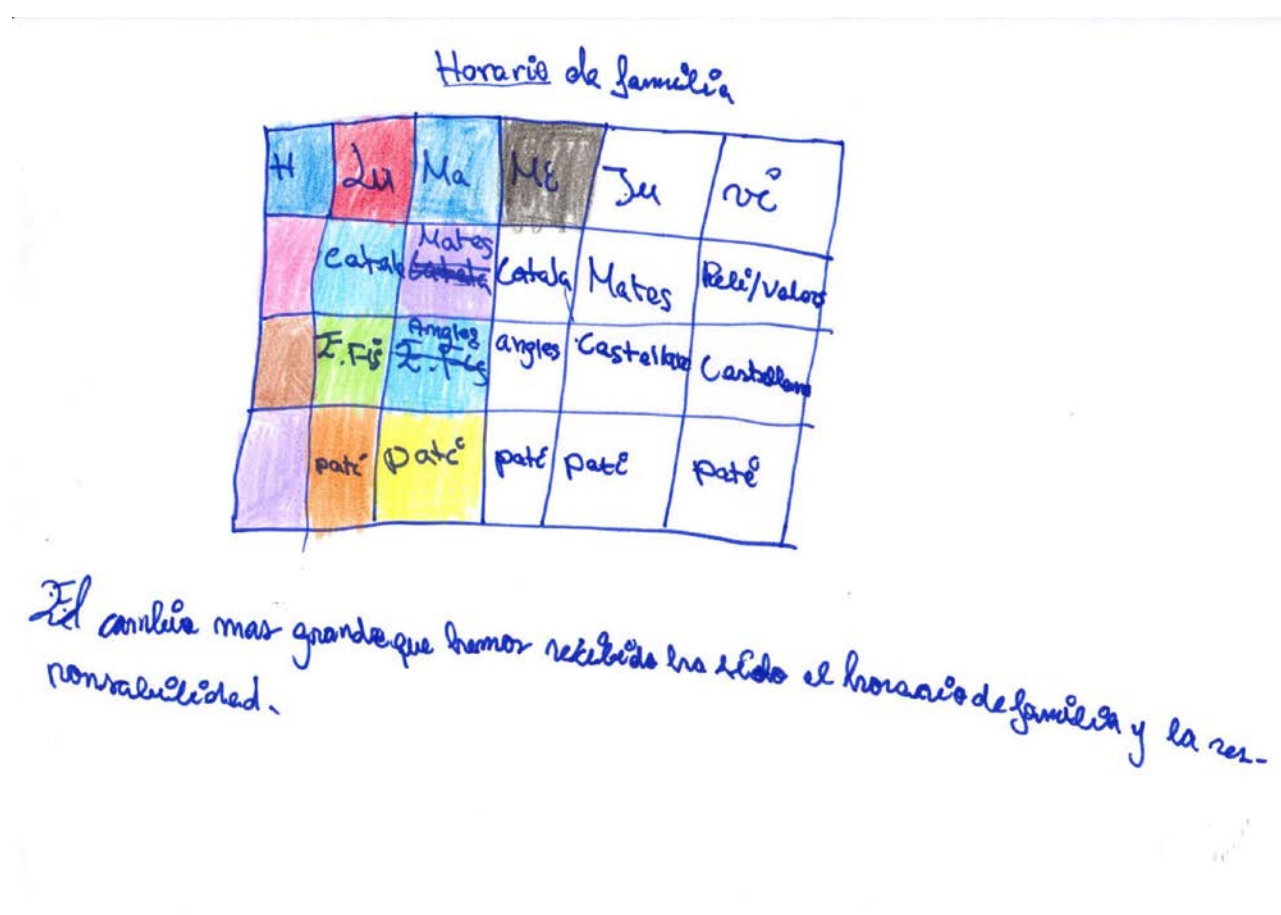 Horario de familia
H Lu Ma Me Ju vi
Catala Mates Catala Catala Mates Reli/Valors
E.Fis Angles E.Fis angles Castellano Castellano
pati pati pati pati pati
El cambio mas grande que hemos recibido ha sido el horario de familia y la res-
ponsabilidad.